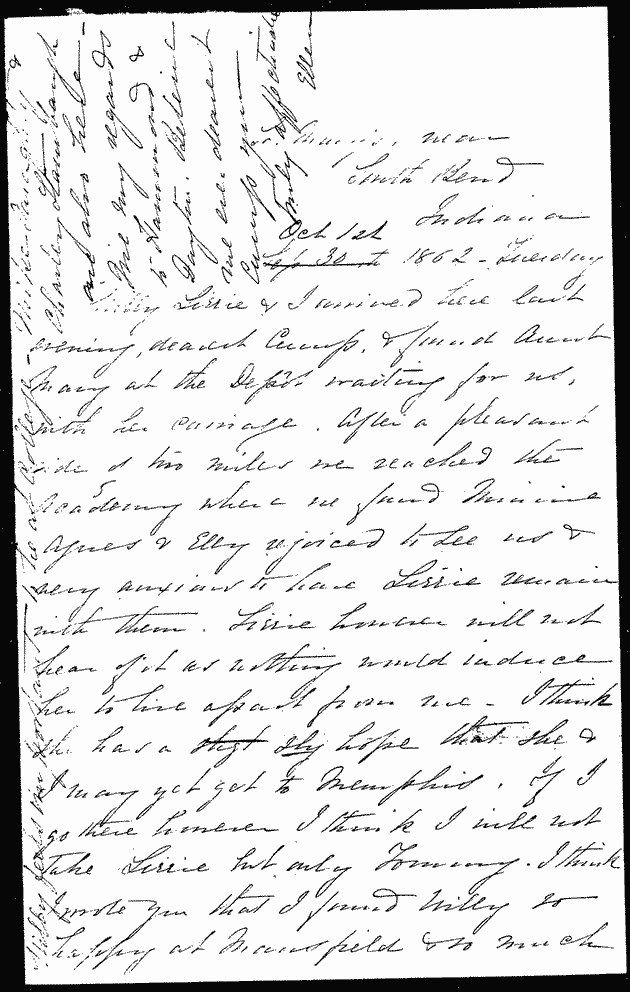 St. Mary's, near
South Bend
Indiana
Oct 1st
Sep 30th 1862 - Tuesday
Willy Lizzie & I arrived here last
evening, dearest Cump, & found Aunt
Mary at the Depôt waiting for us,
with her carriage. After a pleasant
ride of two miles we reached the
Academy where we found Minnie
Agnes & Elly rejoiced to see us &
very anxious to have Lizzie remain
with them. Lizzie however will not
hear of it as nothing would induce
her to live apart from me - I think
she has a slight sly hope that she &
I may yet get to Memphis. If I
go there however I think I will not
take Lizzie but only Tommy. I think
I wrote you that I found Willy so
happy at Mansfield & so much
Willy feels
to be at College -
&
Charley
are also here -
Give my regards
to Hammond &
Dayton. Believe
me ever dearest
Cump your
truly affectionate
Ellen